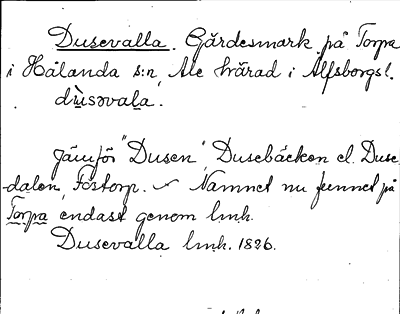 Dusevalla. Gärdesmark på Torpa
i Hålanda s:n, Ale härad i Älfsborgs l.
dùsəvala.
Jämför "Dusen", Dusebäcken el. Duse-
dalen, Fostorp. Namnet nu funnet på
Torpa endast genom lmh.
Dusevalla lmh. 1826.